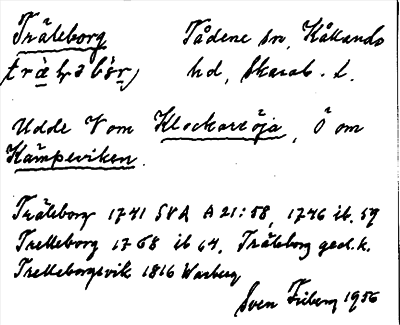 Träleborg Tådene sn, Kållands
hd, Skarab. l.
Udde V om Klockareöja, Ö om
Kämpeviken.
Träleborg 1741 SVA A 21:58, 1746 ib. 59
Trelleborg 1768 ib 64, Träleborg geol.k.
Trelleborgsvik 1816 Warberg
Sven Friberg 1956